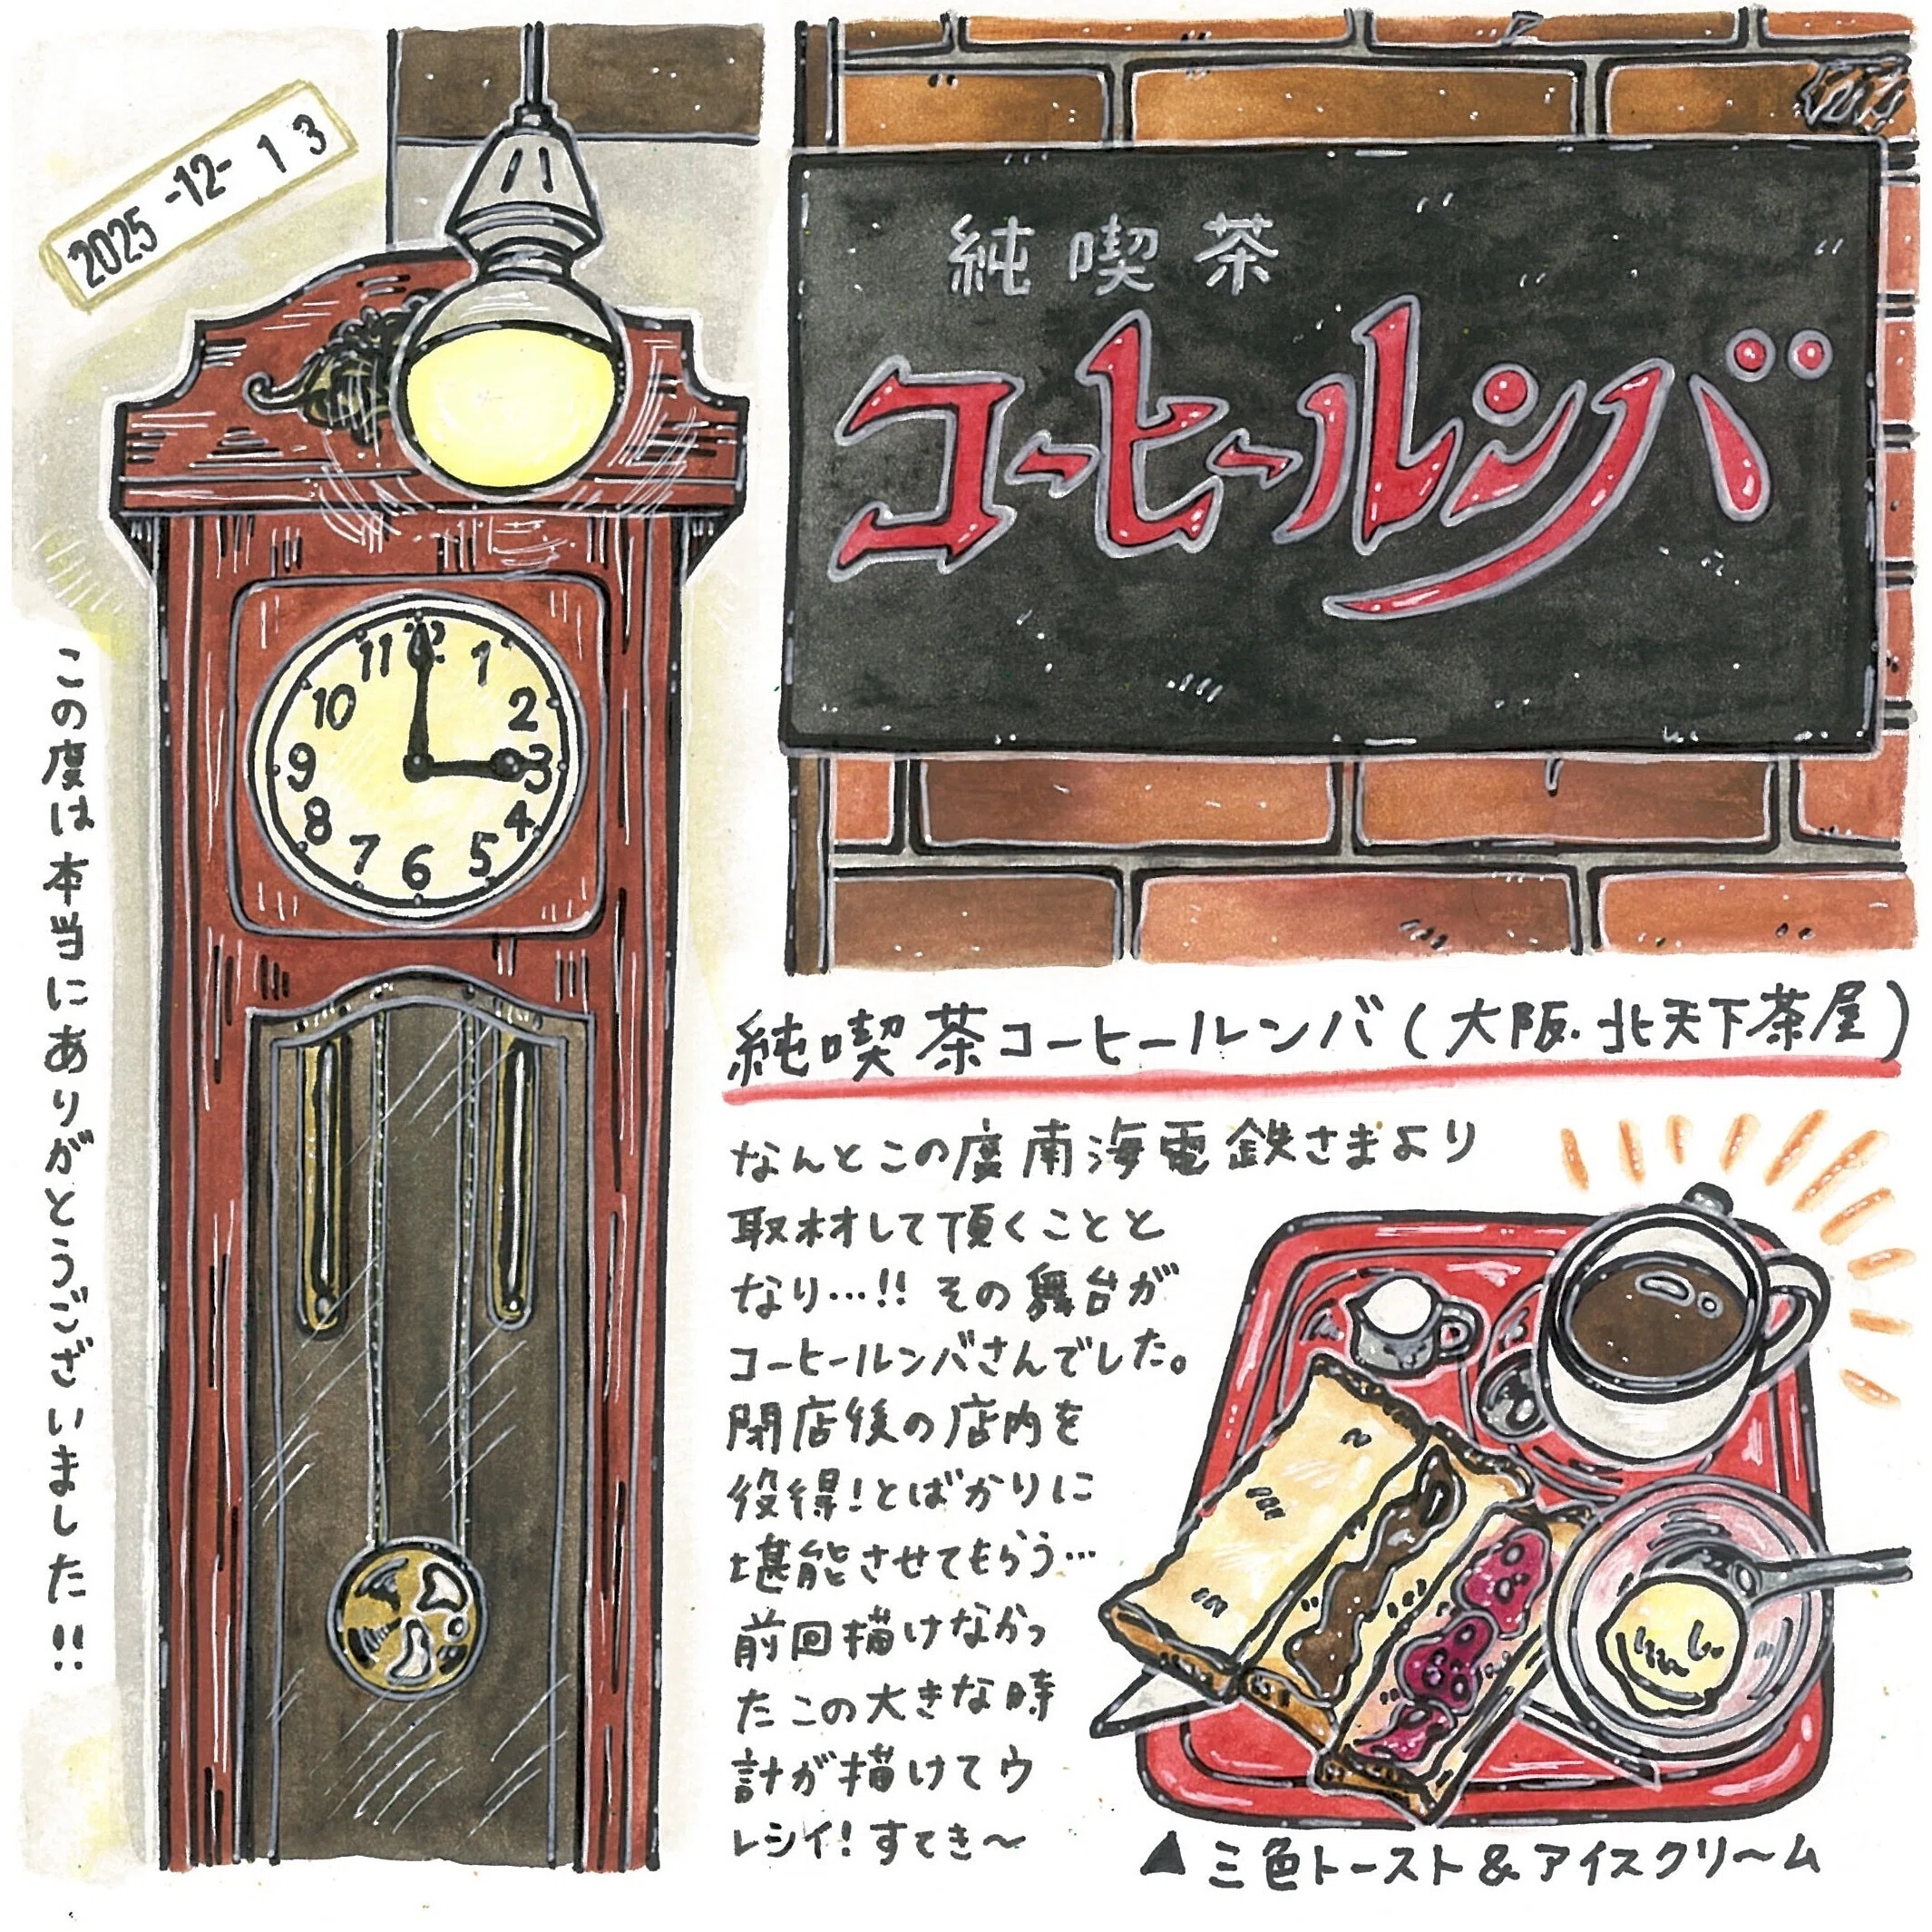 2025 -12- 13
純喫茶
コーヒールンバ
11 12 1
10 2
9 3
8 4
7 6 5
この度は本当にありがとうございました!!
純喫茶コーヒールンバ(大阪・北天下茶屋)
なんとこの度南海電鉄さまより
取材して頂くことと
なり…!! その舞台が
コーヒールンバさんでした。
閉店後の店内を
役得!とばかりに
堪能させてもらう…
前回描けなかっ
たこの大きな時
計が描けてウ
レシイ! すてき〜
▲三色トースト&アイスクリーム